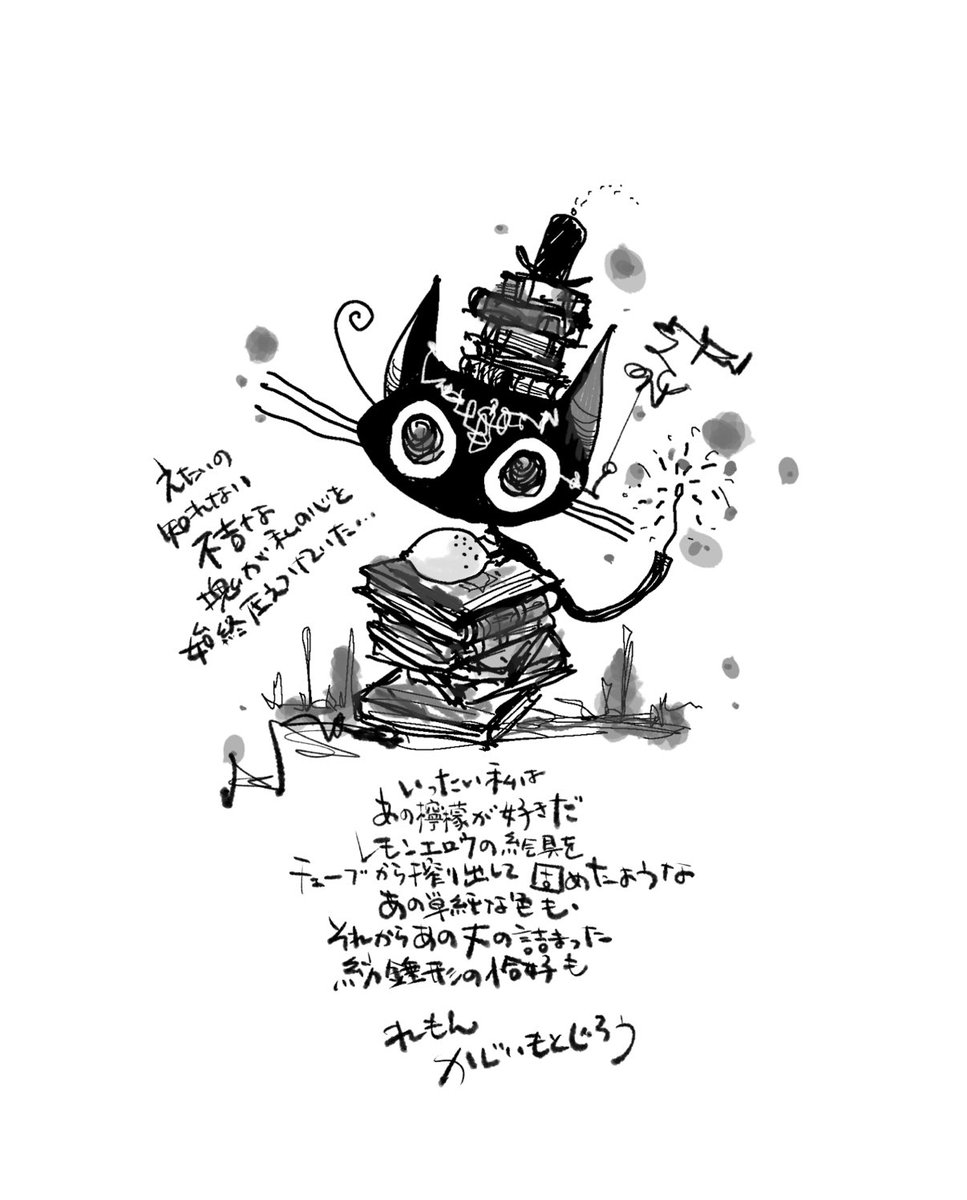 えたいの
知れない
不吉な
塊が私の心を
始終圧えつけていた…
いったい私は
あの檸檬が好きだ
レモンエロウの絵具を
チューブから搾り出して固めたような
あの単純な色も、
それからあの丈の詰まった
紡錘形の恰好も
れもん
かじいもとじろう